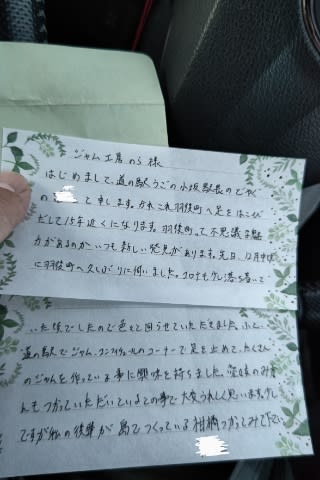 ジャム工房のら 様
はじめまして、道の駅うごの小坂駅長のでやく
の と申します。かれこれ羽後町へ足をはこび
だして15年近くになります。羽後町って不思議な魅
力があるのかいつも新しい発見があります。先日、12月中旬
に羽後町へ久しぶりに伺いました。コロナも少し落ち着いて
いた頃でしたので色々と回らせていただきました。ふと、
道の駅でジャム、コンフィチュールのコーナーで足を止めて、たくさん
のジャムを作っている事に興味を持ちました。愛媛のみか
んもつかっていただいているとの事で大変うれしく思います。少し
ですが私の後輩が島でつくっている柑橘つかってみて下さい